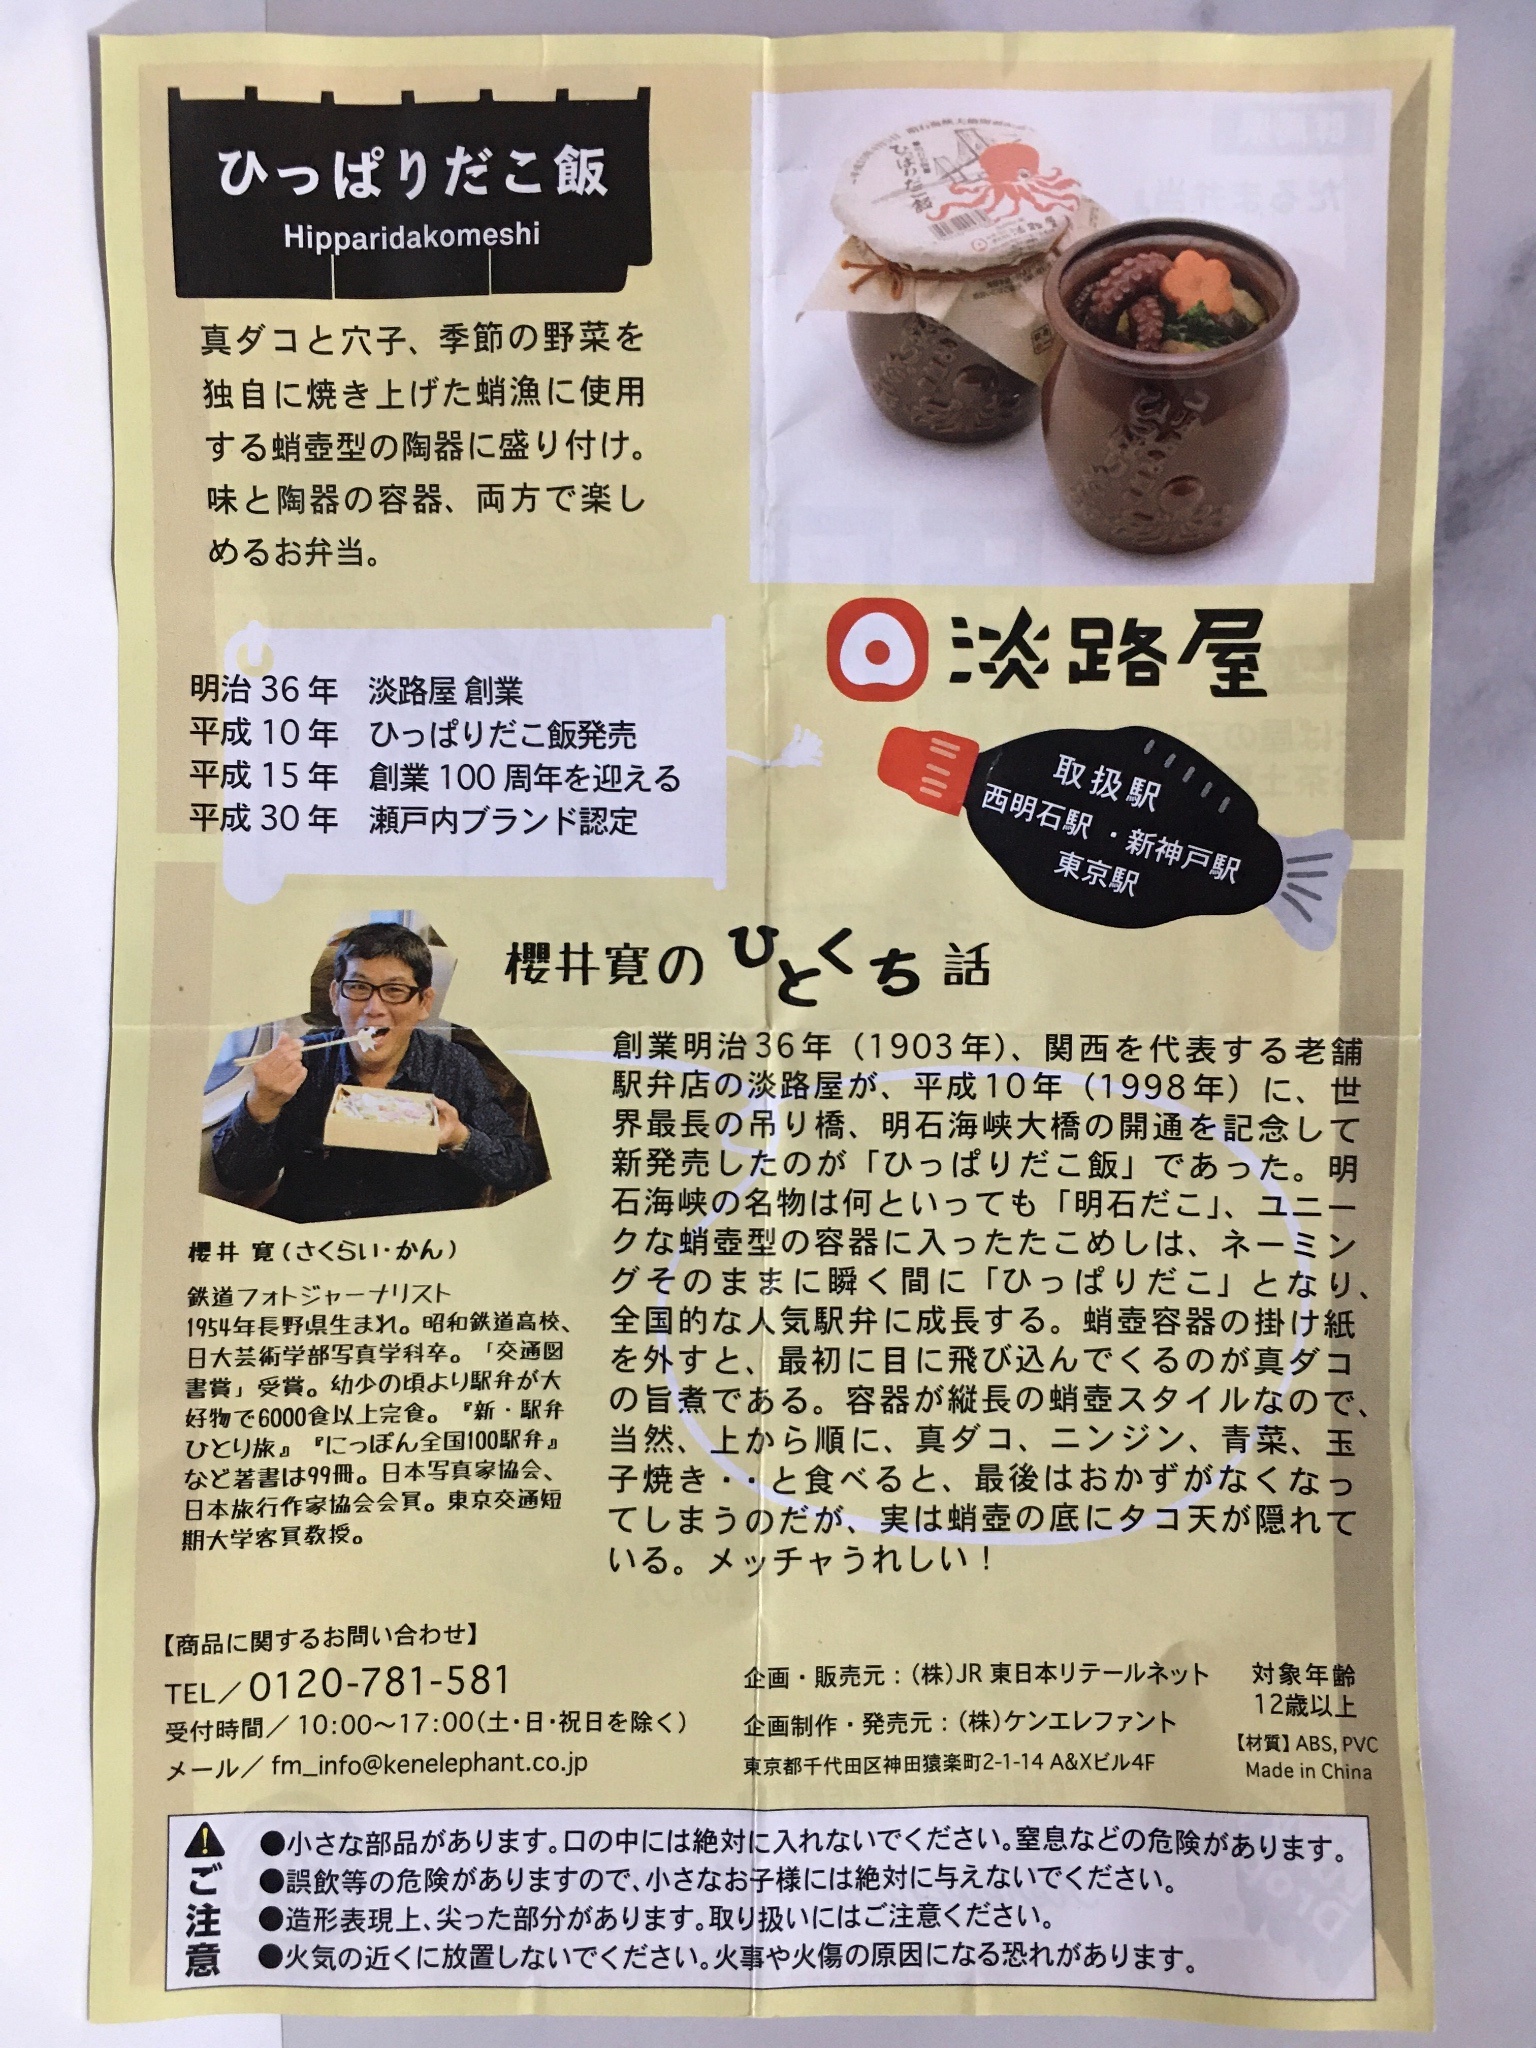 ひっぱりだこ飯
Hipparidakomeshi
真ダコと穴子、季節の野菜を
独自に焼き上げた蛸漁に使用
する蛸壺型の陶器に盛り付け。
味と陶器の容器、両方で楽し
めるお弁当。
淡路屋
明治36年 淡路屋 創業
平成10年 ひっぱりだこ飯発売
平成15年 創業100周年を迎える
平成30年 瀬戸内ブランド認定
取扱駅
西明石駅・新神戸駅
東京駅
櫻井寛のひとくち話
創業明治36年（1903年）、関西を代表する老舗
駅弁店の淡路屋が、平成10年（1998年）に、世
界最長の吊り橋、明石海峡大橋の開通を記念して
新発売したのが「ひっぱりだこ飯」であった。明
石海峡の名物は何といっても「明石だこ」、ユニー
クな蛸壺型の容器に入ったたこめしは、ネーミン
グそのままに瞬く間に「ひっぱりだこ」となり、
全国的な人気駅弁に成長する。蛸壺容器の掛け紙
を外すと、最初に目に飛び込んでくるのが真ダコ
の旨煮である。容器が縦長の蛸壺スタイルなので、
当然、上から順に、真ダコ、ニンジン、青菜、玉
子焼き・・と食べると、最後はおかずがなくなっ
てしまうのだが、実は蛸壺の底にタコ天が隠れて
いる。メッチャうれしい！
櫻井 寛（さくらい・かん）
鉄道フォトジャーナリスト
1954年長野県生まれ。昭和鉄道高校、
日大芸術学部写真学科卒。「交通図
書賞」受賞。幼少の頃より駅弁が大
好物で6000食以上完食。『新・駅弁
ひとり旅』『にっぽん全国100駅弁』
など著書は99冊。日本写真家協会、
日本旅行作家協会会員。東京交通短
期大学客員教授。
【商品に関するお問い合わせ】
TEL／0120-781-581
受付時間／10:00～17:00（土・日・祝日を除く）
メール／fm_info@kenelephant.co.jp
企画・販売元：（株）JR東日本リテールネット
企画制作・発売元：（株）ケンエレファント
東京都千代田区神田猿楽町2-1-14 A&Xビル4F
対象年齢
12歳以上
【材質】ABS, PVC
Made in China
ご注意
●小さな部品があります。口の中には絶対に入れないでください。窒息などの危険があります。
●誤飲等の危険がありますので、小さなお子様には絶対に与えないでください。
●造形表現上、尖った部分があります。取り扱いにはご注意ください。
●火気の近くに放置しないでください。火事や火傷の原因になる恐れがあります。